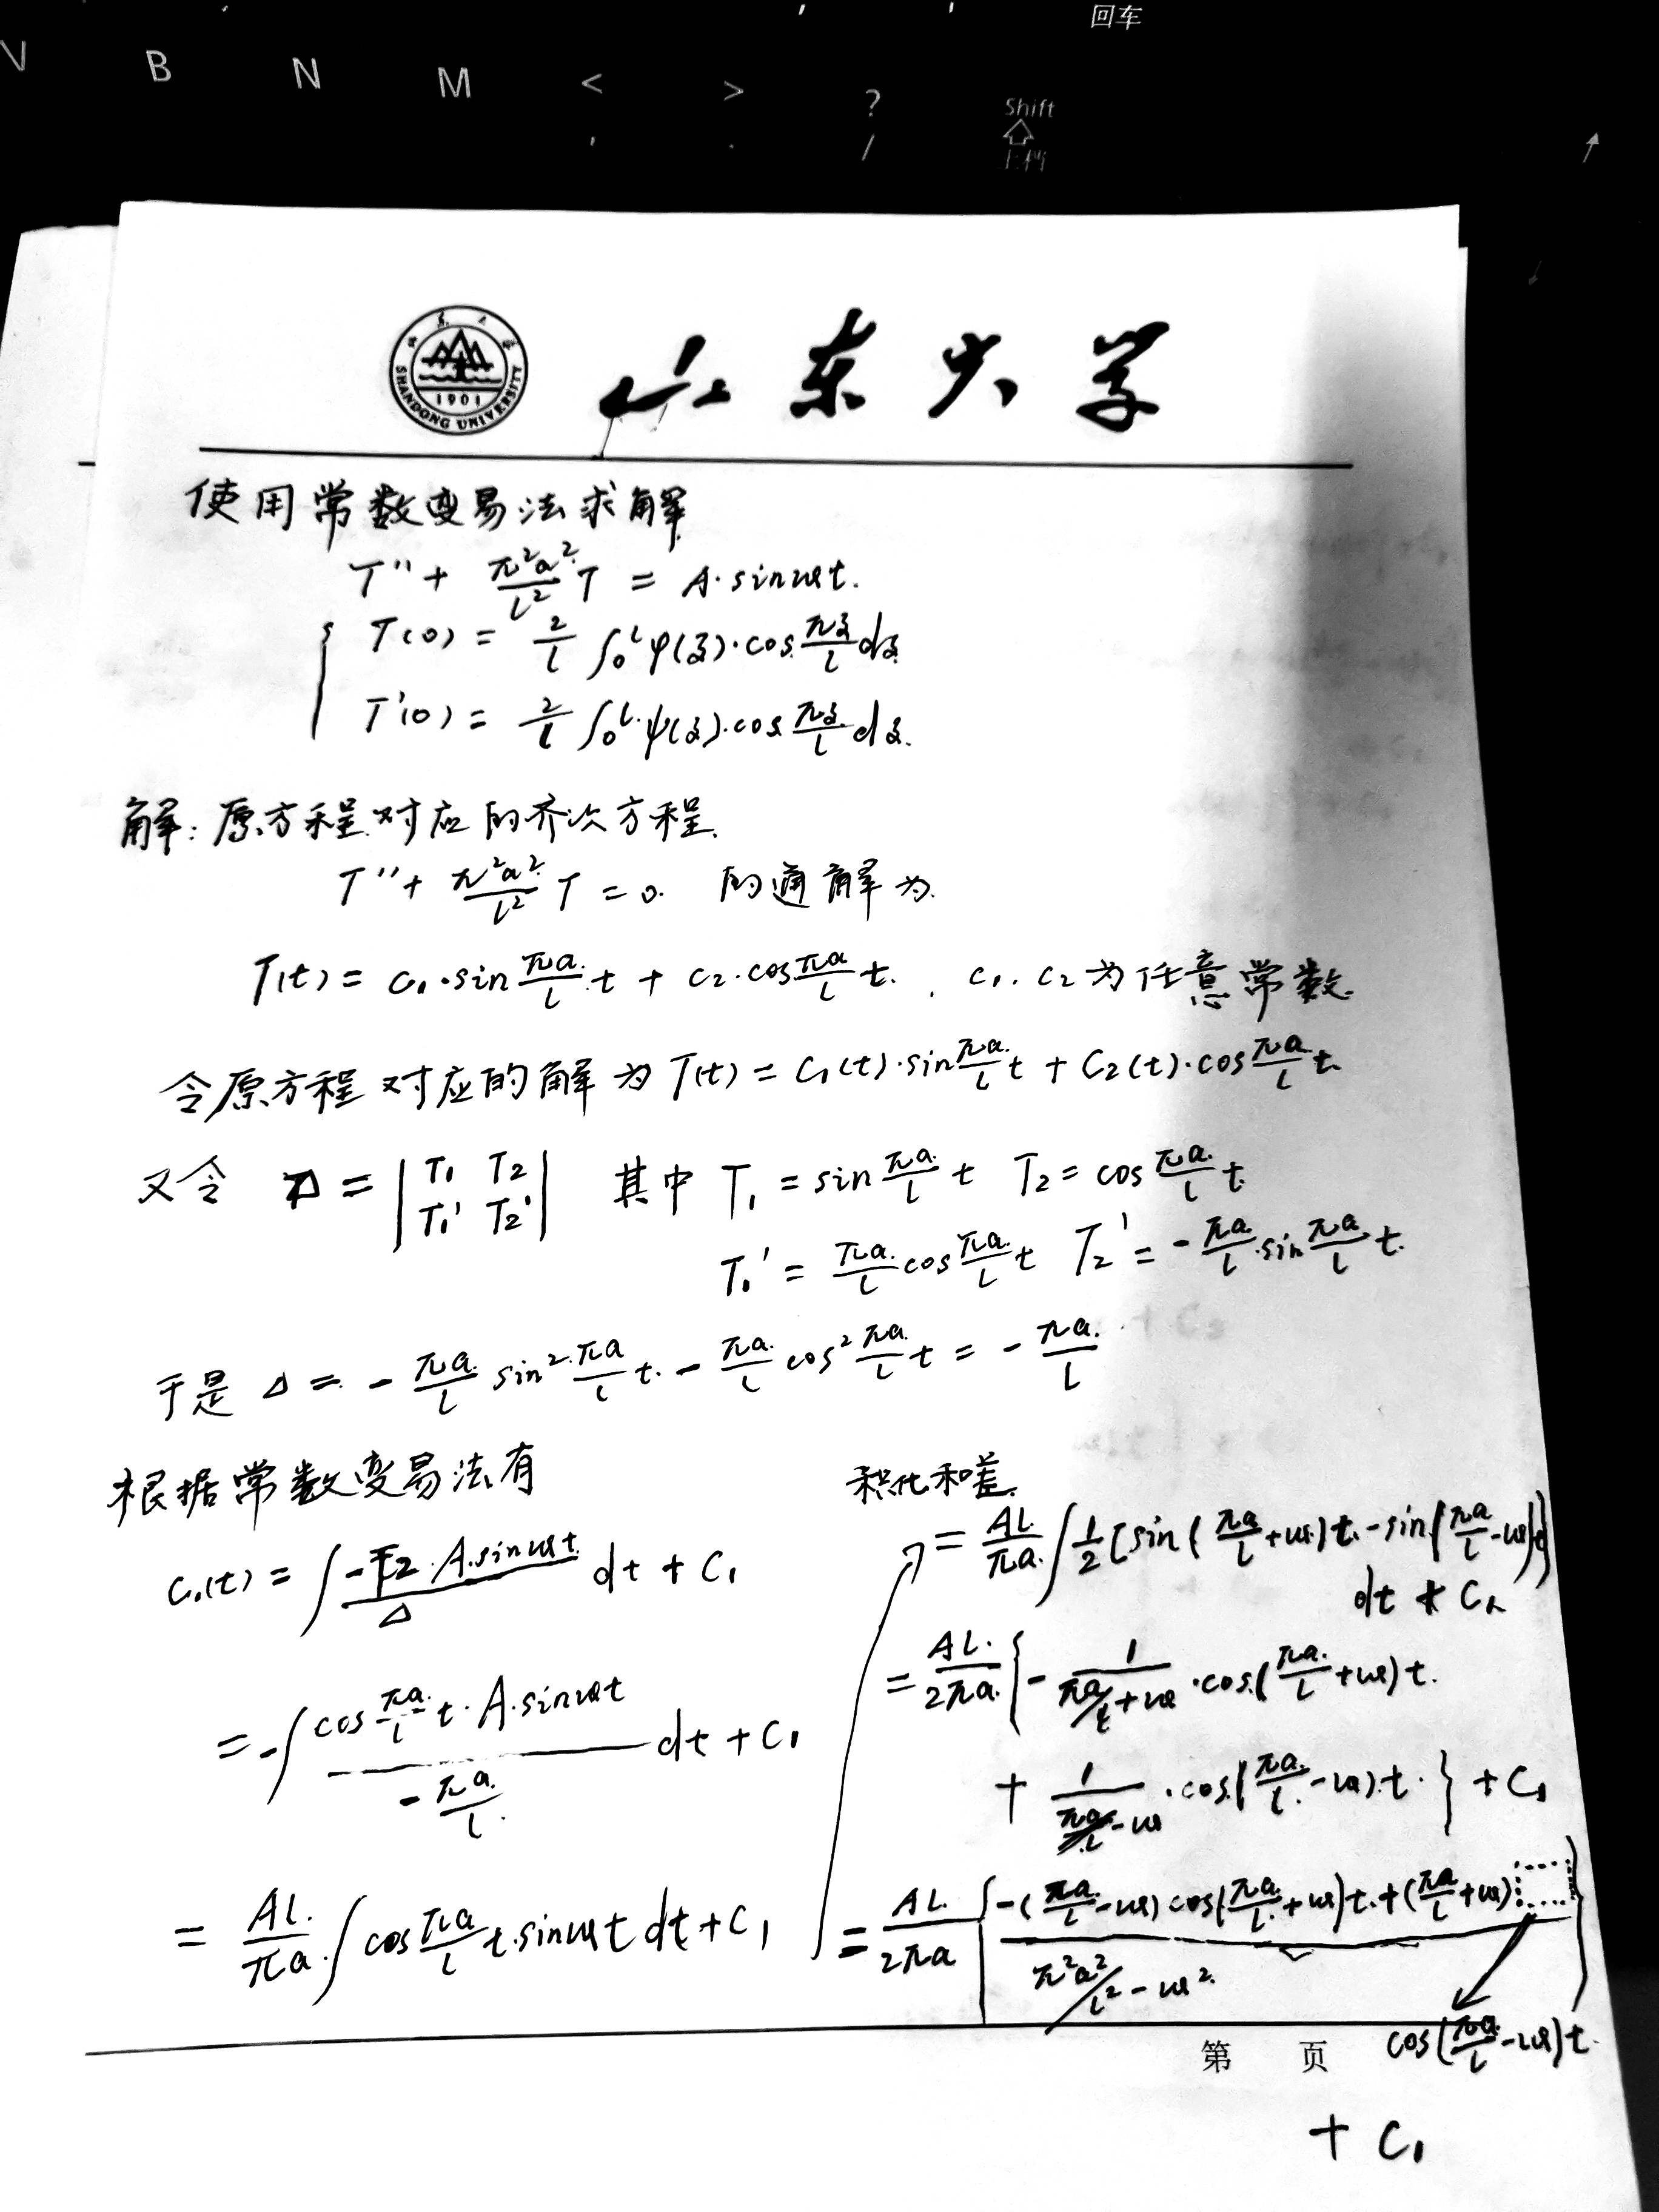 回车
V B N M < > ?
, . / Shift
山东大学
SHANDONG UNIVERSITY
1901
使用常数变易法求解
T'' + π²a²/l² T = A·sinωt.
T(0) = 2/l ∫₀ˡ φ(ξ)·cos πξ/l dξ
T'(0) = 2/l ∫₀ˡ ψ(ξ)·cos πξ/l dξ.
解: 原方程对应的齐次方程.
T'' + π²a²/l² T = 0. 的通解为.
T(t) = C₁·sin πa/l t + C₂·cos πa/l t. , C₁. C₂ 为任意常数.
令原方程对应的解为 T(t) = C₁(t)·sin πa/l t + C₂(t)·cos πa/l t.
又令 Δ = | T₁ T₂ | 其中 T₁ = sin πa/l t T₂ = cos πa/l t.
| T₁' T₂' | T₁' = πa/l cos πa/l t T₂' = - πa/l·sin πa/l t.
于是 Δ = - πa/l sin² πa/l t. - πa/l cos² πa/l t = - πa/l
根据常数变易法有
C₁(t) = ∫ -T₂·A·sinωt/Δ dt + C₁
= -∫ cos πa/l t·A·sinωt / (-πa/l) dt + C₁
= Al/πa ∫ cos πa/l t·sinωt dt + C₁
积化和差.
= Al/πa ∫ 1/2 [sin(πa/l + ω)t - sin(πa/l - ω)t]
dt + C₁
= Al/2πa { - 1/(πa/l + ω)·cos(πa/l + ω)t.
+ 1/(πa/l - ω)·cos(πa/l - ω)t. } + C₁
= Al/2πa { [-(πa/l - ω) cos(πa/l + ω)t + (πa/l + ω) ] / (π²a²/l² - ω²) }
cos(πa/l - ω)t.
第 页
+ C₁